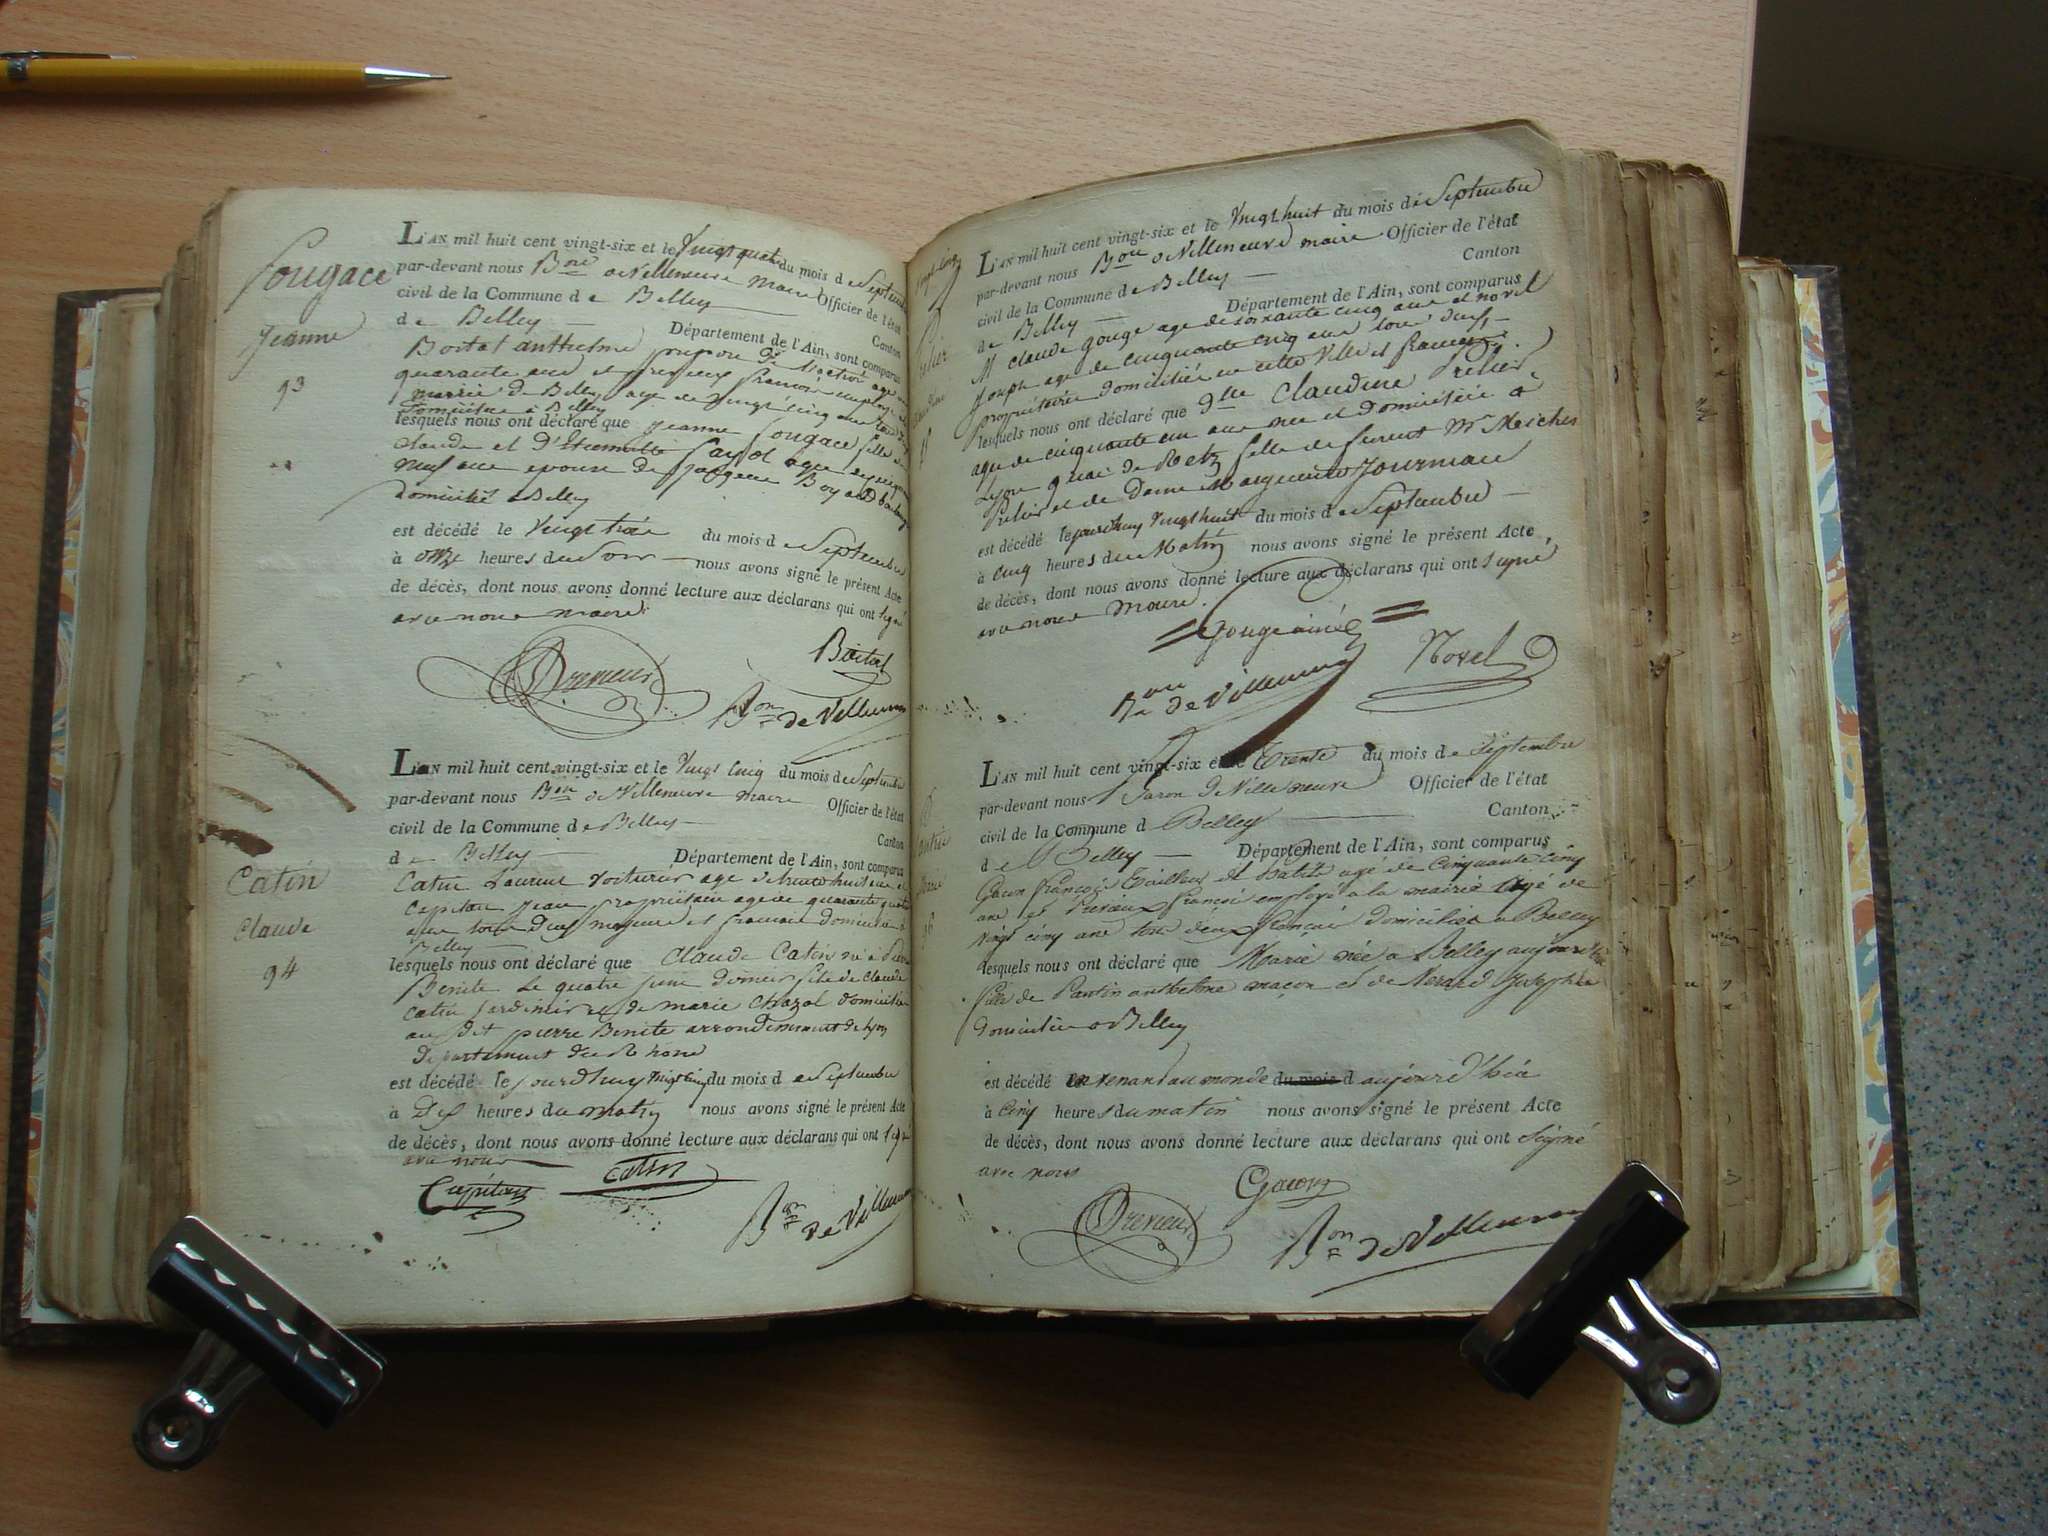 Fougace
Jeanne
93
L'AN mil huit cent vingt-six et le Vingt quatre du mois de Septembre
par-devant nous Bon de Villeneuve maire Officier de l'état
civil de la Commune de Belley Canton
de Belley Département de l'Ain, sont comparus
Boital anthelme
quarante ans et françois employé
mairie de Belley age de vingt cinq ans
Domiciliés a Belley
lesquels nous ont déclaré que jeanne fougace fille de
claude et d'Etiennette
neuf ans epouse de
domicilié a Belley
est décédé le Vingt trois du mois de Septembre
à onze heures du Soir nous avons signé le présent Acte
de décès, dont nous avons donné lecture aux déclarans qui ont signé
avec nous maire
Boital
Dreveux
Bon de Villeneuve
Catin
Claude
94
L'AN mil huit cent vingt-six et le Vingt Cinq du mois de Septembre
par-devant nous Bon de Villeneuve maire Officier de l'état
civil de la Commune de Belley Canton
de Belley Département de l'Ain, sont comparus
Catin Laurent Voiturier age de trente huit ans et
Capitan jean propriétaire age de quarante quatre
ans tous deux majeurs et francais domiciliés a
Belley
lesquels nous ont déclaré que Claude Catin né à Pierre
Benite Le quatre juin dernier fils de Claude
Catin jardinier et de marie Chazal domiciliés
au dit pierre Benite arrondissement de Lyon
Departement du Rhone
est décédé le jourdhuy Vingt Cinq du mois de Septembre
à Dix heures du matin nous avons signé le présent Acte
de décès, dont nous avons donné lecture aux déclarans qui ont signé
avec nous
Capitan Catin
Bon de Villeneuve
L'AN mil huit cent vingt-six et le Vingt huit du mois de Septembre
par-devant nous Bon de Villeneuve maire Officier de l'état
civil de la Commune de Belley Canton
de Belley Département de l'Ain, sont comparus
M claude gouge age de soixante cinq ans et novel
joseph age de cinquante cinq ans tous deux
propriétaires domiciliés en cette Ville et francais
lesquels nous ont déclaré que dlle Claudine Prelier
age de cinquante un ans nee et domiciliée a
Lyon quai de Retz fille de furent Mr
Prelier et de Dame Marguerite Journau
est décédé le jourdhuy Vingt huit du mois de Septembre
à Cinq heures du Matin nous avons signé le présent Acte
de décès, dont nous avons donné lecture aux déclarans qui ont signé
avec nous Maire.
Gouge ainé
Novel
Bon de Villeneuve
L'AN mil huit cent vingt-six et le Trente du mois de Septembre
par-devant nous Baron de Villeneuve Officier de l'état
civil de la Commune d Belley Canton
de Belley Département de l'Ain, sont comparus
Gacon françois Tailleur d'habits agé de Cinquante cinq
ans et Dreveux françois employé a la mairie agé de
vingt cinq ans tous deux françois domiciliés a Belley
lesquels nous ont déclaré que Marie née a Belley aujourd'hui
fille de Pantin anthelme maçon et de Nerard Josephte
domiciliés a Belley
est décédé en venant au monde du mois d aujourd'hui
à Cinq heures du matin nous avons signé le présent Acte
de décès, dont nous avons donné lecture aux déclarans qui ont Signé
avec nous
Gacon
Dreveux
Bon de Villeneuve